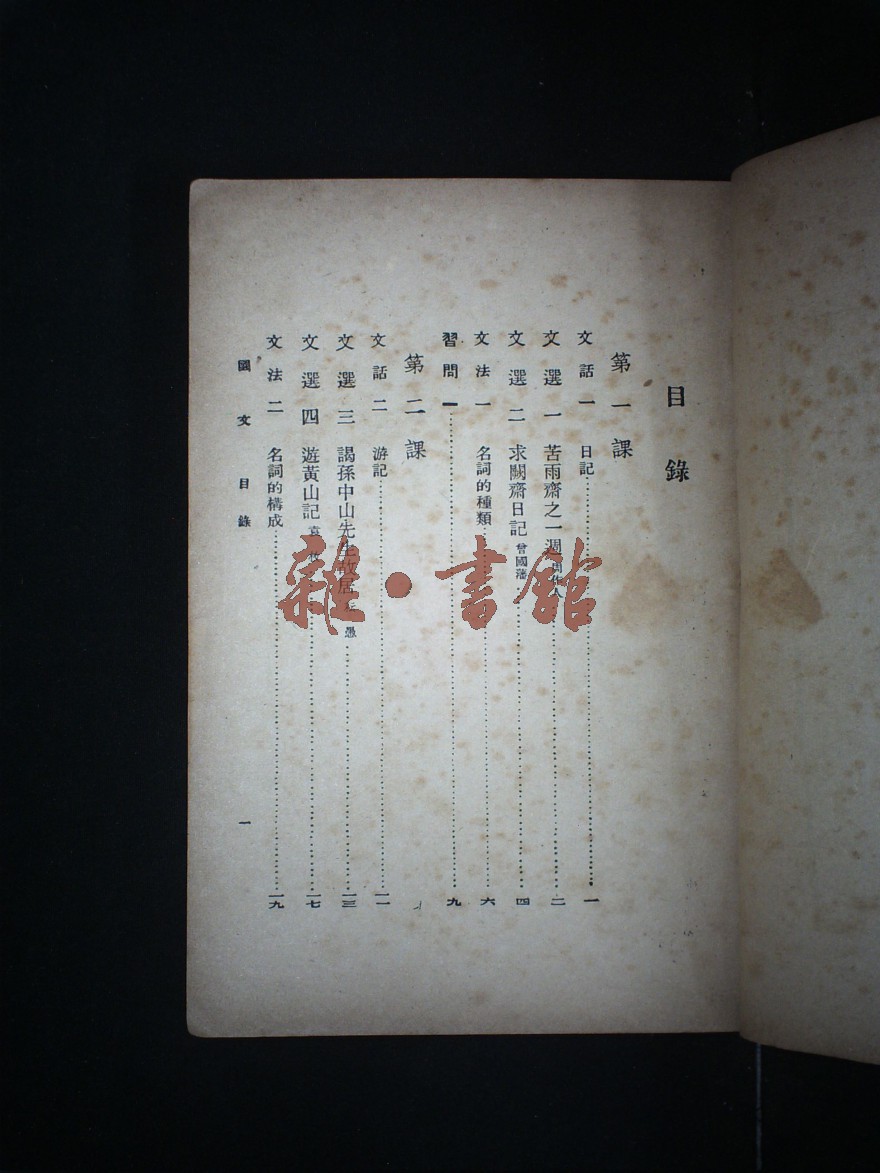 目錄
第一課
文話一 日記 一
文選一 苦雨齋之一週 周作人 二
文選二 求闕齋日記 曾國藩 四
文法一 名詞的種類 六
習問一 九
第二課
文話二 游記 一一
文選三 謁孫中山先生故居 愚 一三
文選四 遊黃山記 袁枚 一七
文法二 名詞的構成 一九
國文 目錄 一
雜·書館